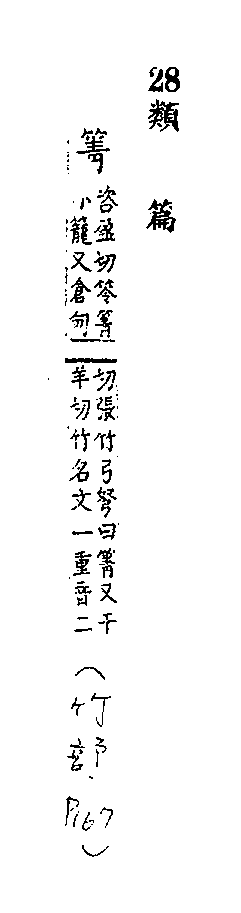 28類篇
箐
咨盈切笭箐
小籠又倉甸
切張竹弓弩曰箐又千
羊切竹名文一重音二
（竹部．P167）